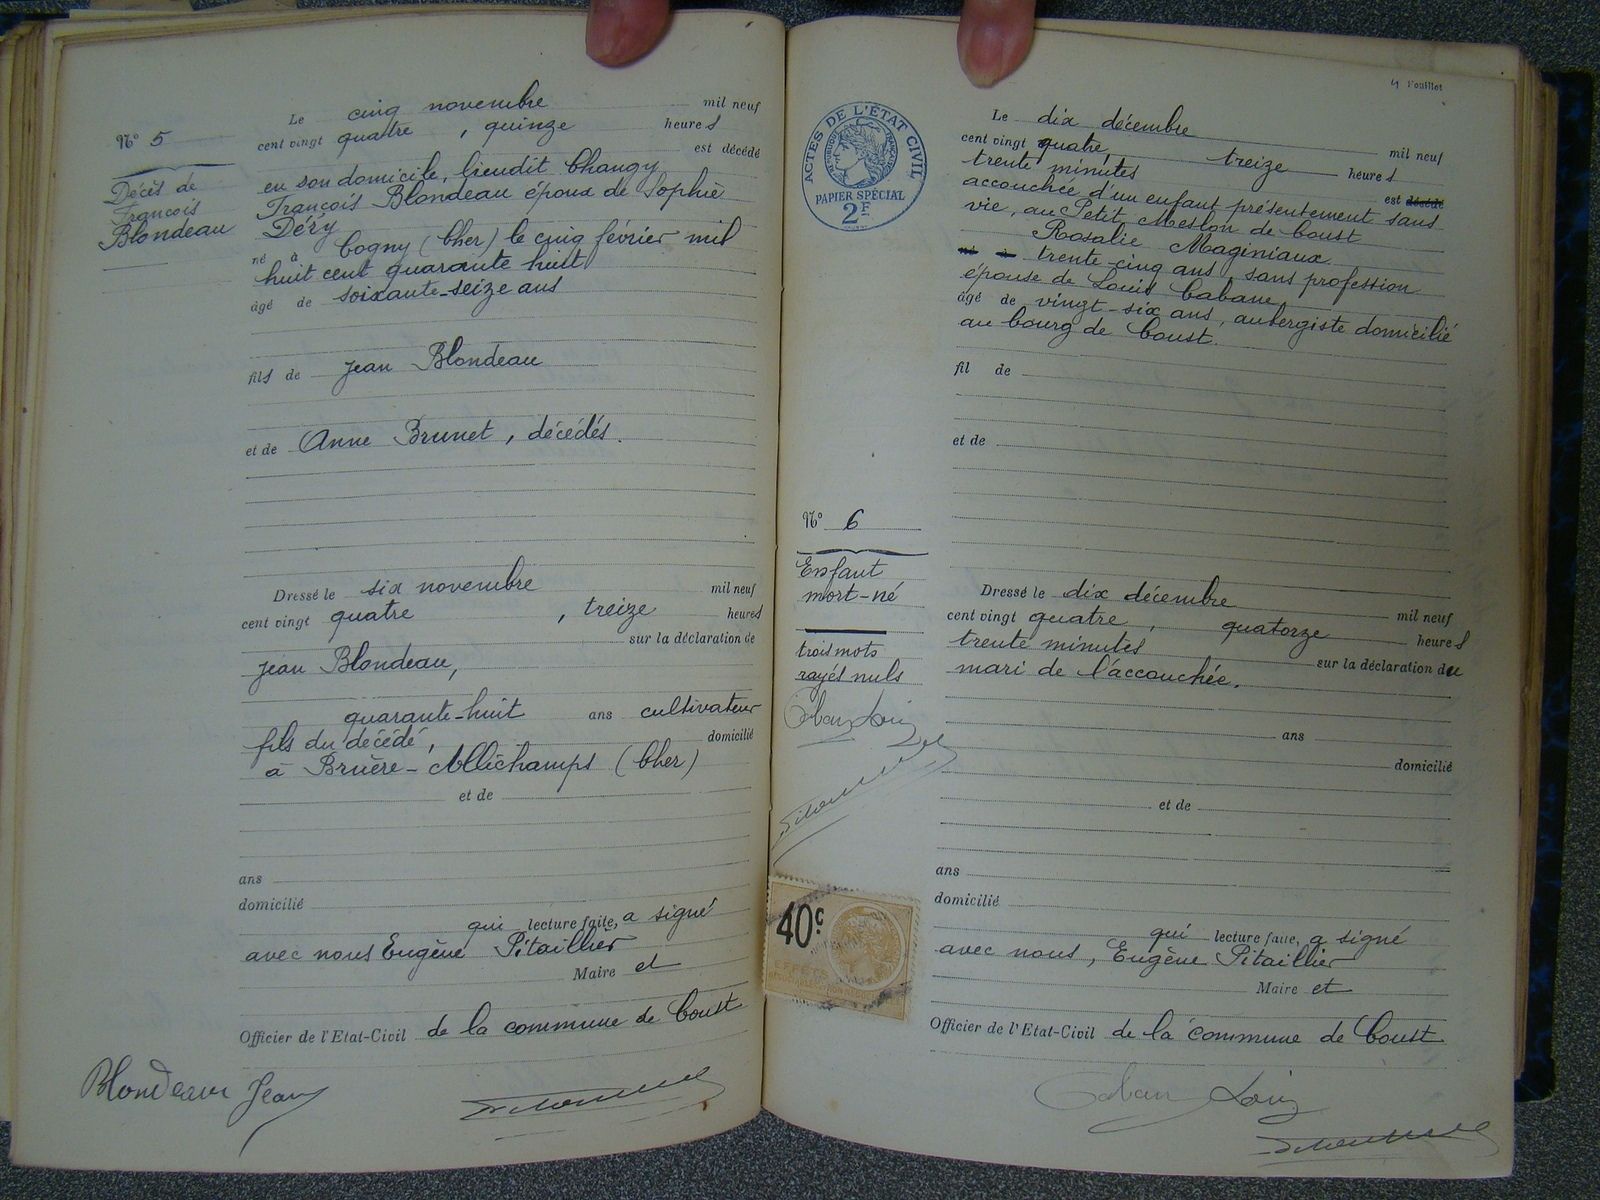 N° 5
Décès de
François
Blondeau
Le cinq novembre mil neuf
cent vingt quatre, quinze heures
est décédé
en son domicile, lieudit Changy
François Blondeau époux de Sophie
Déry
né à Cogny (Cher) le cinq février mil
huit cent quarante huit
âgé de soixante-seize ans
fils de Jean Blondeau
et de Anne Brunet, décédés.
Dressé le six novembre mil neuf
cent vingt quatre, treize heures
sur la déclaration de
Jean Blondeau,
quarante-huit ans cultivateur
fils du décédé, domicilié
à Bruère-Allichamps (Cher)
et de
ans
domicilié
qui lecture faite, a signé
avec nous Eugène Pitaillier
Maire et
Officier de l'Etat-Civil de la commune de Coust
Blondeau Jean
4 Feuillet
ACTES DE L'ÉTAT CIVIL
PAPIER SPÉCIAL
2F
N° 6
Enfant
mort-né
trois mots
rayés nuls
40c
Le dix décembre mil neuf
cent vingt quatre, treize heures
trente minutes est décédé
accouchée d'un enfant présentement sans
vie, au Petit Meslon de Coust
Rosalie Maginiaux
né à trente-cinq ans, sans profession
épouse de Louis Cabane,
âgé de vingt-six ans, aubergiste domicilié
au bourg de Coust.
fil de
et de
Dressé le dix décembre mil neuf
cent vingt quatre, quatorze heures
trente minutes sur la déclaration du
mari de l'accouchée.
ans
domicilié
et de
ans
domicilié
qui lecture faite, a signé
avec nous, Eugène Pitaillier
Maire et
Officier de l'Etat-Civil de la commune de Coust